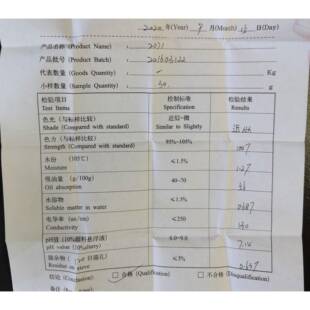 2020 年(Year) 9 月(Month) 日(Day)
产品名称 (Product Name) : 2071
产品批号 (Product Batch) :
代表数量 (Goods Quantity) : Kg
小样数量 (Sample Quantity) : 50 g
检验项目 控制标准 检验结果
Test Items Specification Results
色光 (与标样比较) 近似~微
Shade (Compared with standard) Similar to Slightly
色力 (与标样比较) 95%~105%
Strength (Compared with standard)
水份 (105℃) ≤1.5%
Moisture 1.27
吸油量 (g/100g) 40~70
Oil absorption
水溶物 ≤1.5%
Soluble matter in water
电导率 (us/cm) ≤250
Conductivity
pH值 (10%颜料悬浮液) 6.0~9.0
pH value (10% slurry)
筛余物 目筛孔) ≤5%
Residue on sieve
结论 (Conclusion) 合格 (Qualification) 不合格 (Disqualification)
备注